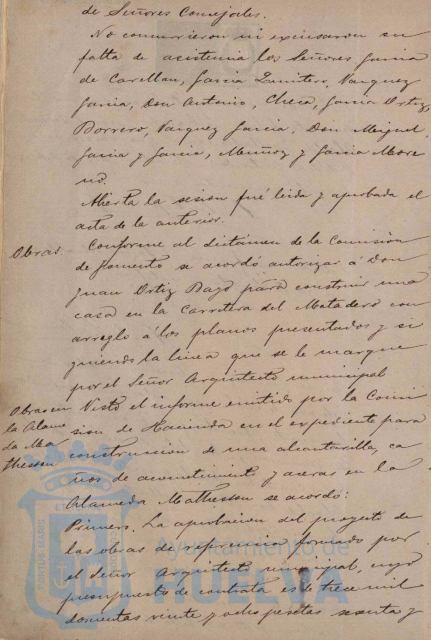 de Señores Concejales.
No concurrieron ni excusaron su
falta de asistencia los Señores Garcia
de Carellan, Garcia Quintero, Vazquez
Garcia, Don Antonio, Checa, Garcia Ortiz,
Borrero, Vazquez Garcia, Don Miguel,
Garcia y Garcia, Muñoz y Garcia More
no.
Abierta la sesion fué leida y aprobada el
acta de la anterior.
Obras.
Conforme al dictámen de la Comisión
de fomento se acordó autorizar á Don
Juan Ortiz Bayo para construir una
casa en la Carretera del Matadero con
arreglo á los planos presentados y si
guiendo la linea que se le marque
por el Señor Arquitecto municipal
Obras en
la Alame
da Ma
thessen
Visto el informe emitido por la Comi
sion de Hacienda en el expediente para
construccion de una alcantarilla, ca
ños de acometimiento y aceras en la
Alameda Mathessen se acordó:
Primero. La aprobacion del proyecto de
las obras de referencia formado por
el Señor Arquitecto municipal, cuyo
presupuesto de contrata es de trece mil
doscientas veinte y ocho pesetas sesenta y
Ayuntamiento de
HUELVA
PORTUS MARIS